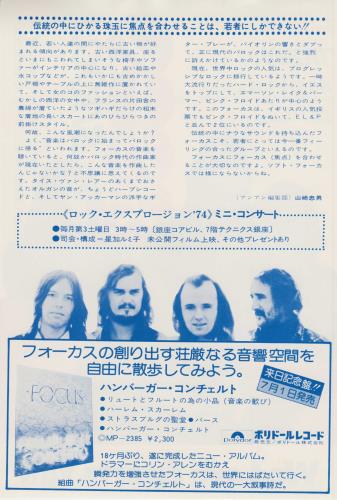 伝統の中にひかる珠玉に焦点を合わせることは、若者にしかできない!!
最近、若い人達の間にやたらに古い物が好
まれる傾向があります。古い西洋家具。座る
といまにもこわれてしまいそうな椅子やソフ
ァーがインテリアの中心になり、古い絵画や
水コップなどが、これもいかにも古めかしい
八戸棚やテーブルの上に異様に置かれていて
くる。そして女のコのファッションといえば、
むかしの西洋の女中や、フランスの片田舎の
農婦が着ていたようなツギハギだらけの粗末
な着地の長いスカートにあのひらひらつきの
前掛けスタイル。
何故、こんな風潮になったんでしょうか?
さて、“音楽はバロックに始まってバロック
に帰る”といわれます。フォーカスの音楽を
聴いていると、何故かバロック時代の作曲家
が現在いたとしたら、こんな音楽を作曲した
んじゃないかな?と不思議に思えてくるので
す。タイス・ヴァン・レアーのあくまでおおき
たオルガンの音が、ちょうどハープシコー
ドと、そしてヤン・アッカーマンの派手なギ
ター・プレーが、バイオリンの響きとダブっ
て、正に現代のバロックはこれだ。と強烈
に訴えかけているかのようなのです。
現在、世界中ロックの人気は、プログレッ
シブなロックに移行しているようです。一時
大流行だったハード・ロックから、イエス
をトップにして、エマーソン・レイク&パー
マー、ピンク・フロイドあたりが中心のよう
です。このフォーカスは、イギリスの人気投
票でもピンク・フロイドをぬいて、EL&P
と並んで2位にいるのです。
伝統の中にナウなサウンドを持ち込んだフ
ォーカスこそ、若者にとっては今一番フィー
リングの合ったグループといえるのです。
フォーカスにフォーカス(焦点)を合わせ
ることが大切なのですよ。ソフト・フォーカ
スでは様にならないからね。
(アンアン編集部)山崎忠男
《ロック・エクスプロージョン'74》ミニ・コンサート
●毎月第3土曜日 3時〜5時[銀座コアビル、7階テクニクス銀座]
●司会・構成=星加ルミ子 未公開フィルム上映、その他プレゼントあり
フォーカスの創り出す荘厳なる音響空間を
自由に散歩してみよう。
来日記念盤!!
7月1日発売
FOCUS
ハンバーガー・コンチェルト
●リュートとフルートの為の小品(音楽の歓び)
●ハーレム・スカーレム
●ストラスブルグの聖堂●バース
●ハンバーガー・コンチェルト
○MP-2385 ¥2,300
Polydor
ポリドールレコード
発売元/ポリドール株式会社
18ケ月ぶり、遂に完成したニュー・アルバム。
ドラマーにコリン・アレンをむかえ
瞬発力を増強させたフォーカスは、世界にはばたいて行く。
組曲「ハンバーガー・コンチェルト」は、現代の一大叙事詩だ。